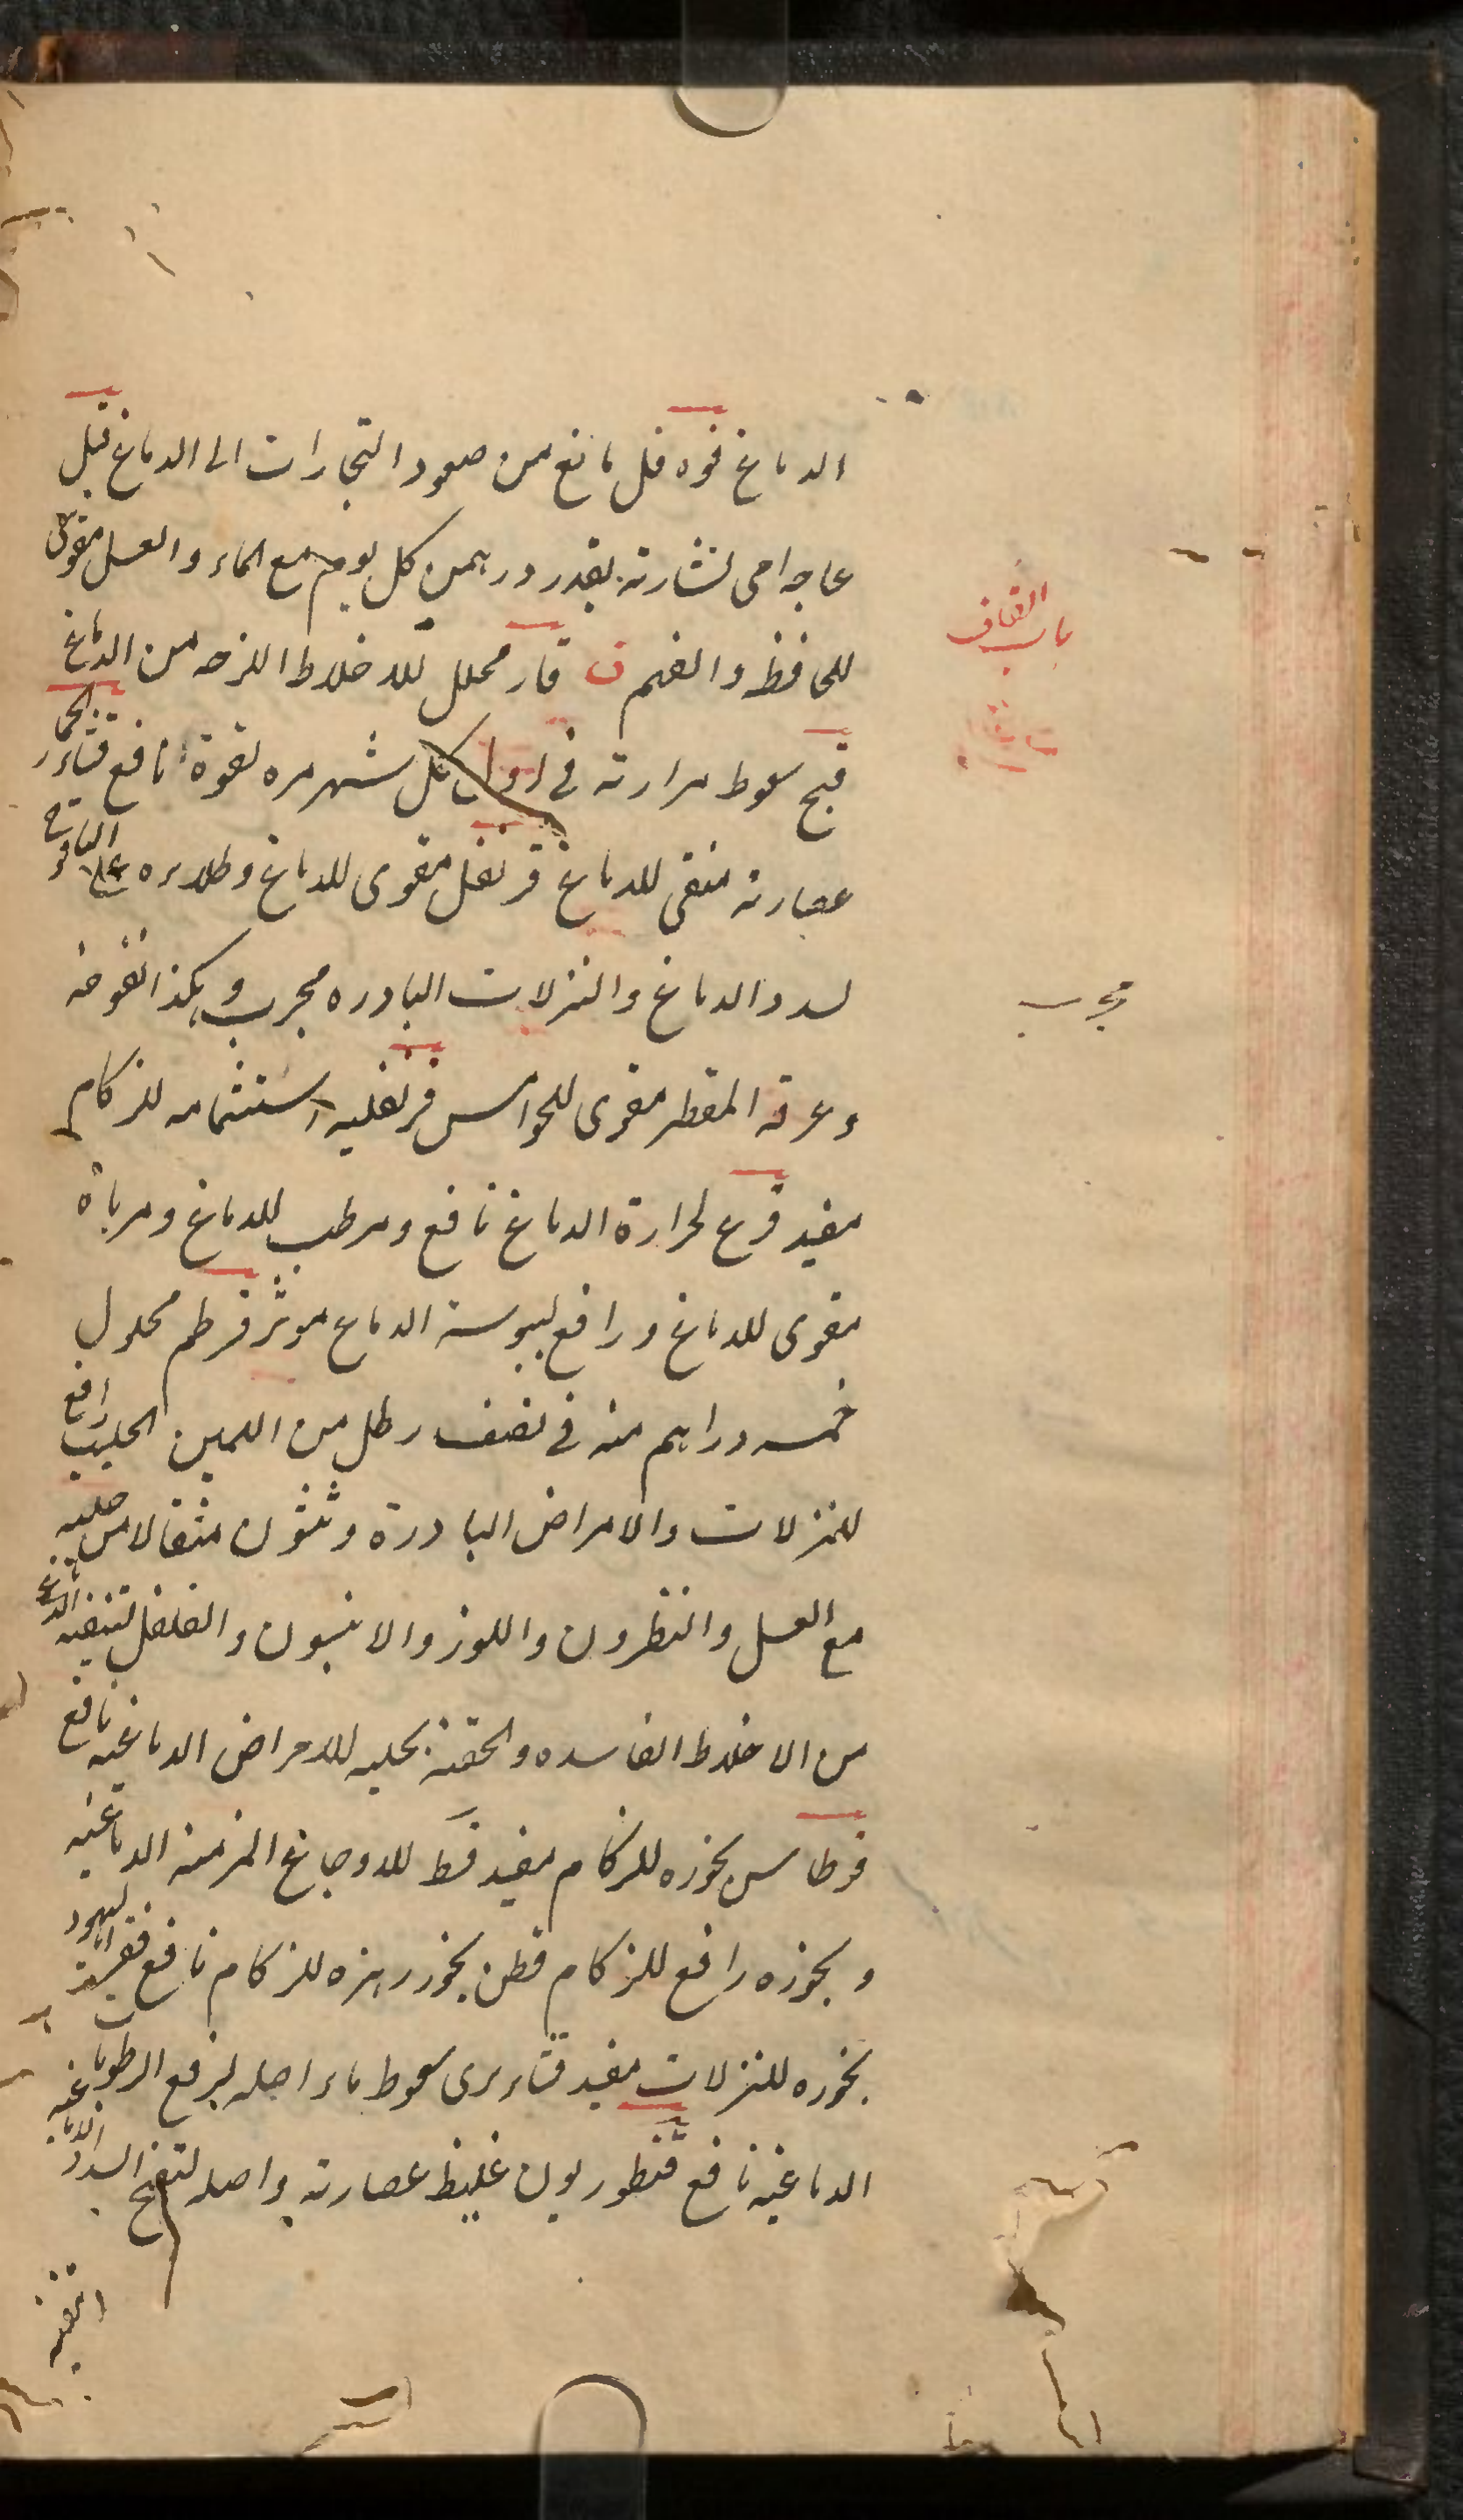 الدماغ فوه فل مانع من صعود البخارات الى الدماغ فيل
عاجه اى نشارته بقدر درهمين كل يوم مع الماء والعسل مقوى
للحافظ والفهم ق قار محلل للاخلاط اللزجه من الدماغ
باب القاف
قبج سعوط مرارته فى اول كل شهر مره لقوة نافع قثاء الحمار
عصارته منقى للدماغ قرنفل مقوى للدماغ وطلاءه على اليافوخ
لسدد الدماغ والنزلات البادره مجرب وهكذا نفوخه
مجرب
وعرقه المقطر مقوى للحواس قرنفليه استشمامه للزكام
مفيد قرع لحرارة الدماغ نافع ومرطب للدماغ ومرباه
مقوى للدماغ ورافع ليبوسة الدماغ موثر قرطم محلول
خمسه دراهم منه فى نصف رطل من اللبن الحليب رافع
للنزلات والامراض البادرة وثلثون مثقالا من حليبه
مع العسل والنطرون واللوز والانيسون والفلفل لتنقيه الدماغ
من الاخلاط الفاسده والحقنة بحليبه للامراض الدماغيه نافع
قرطاس بخوره للزكام مفيد قسط للاوجاع المزمنه الدماغيه
وبخوره رافع للزكام قطن بخور بزره للزكام نافع قفر اليهود
بخوره للنزلات مفيد قثاء برى سعوط ماء اصله لرفع الرطوبات
الدماغيه نافع قنطوريون غليظ عصارته واصله لتفتيح السدد الدماغيه